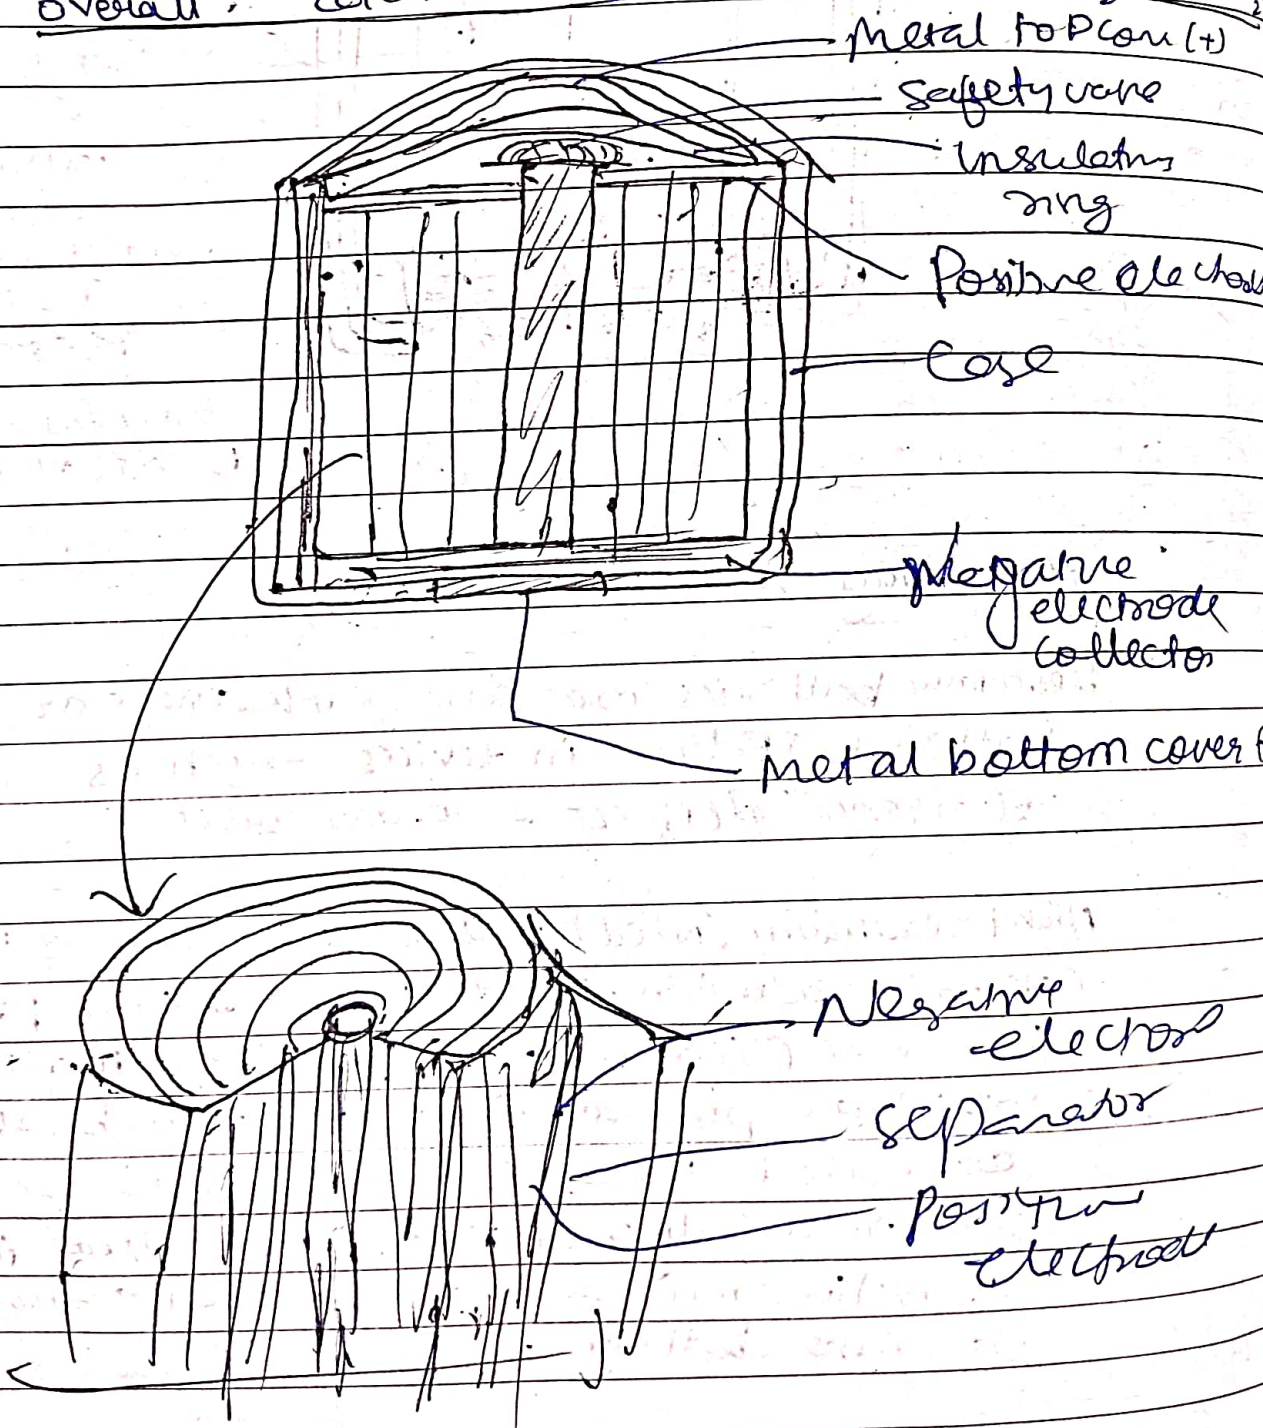 overall :
Metal top
safety
insulating
ring
Positive
Case
Negative
electrode
collector
Metal bottom cover (
Negative
separator
Positive
electrode